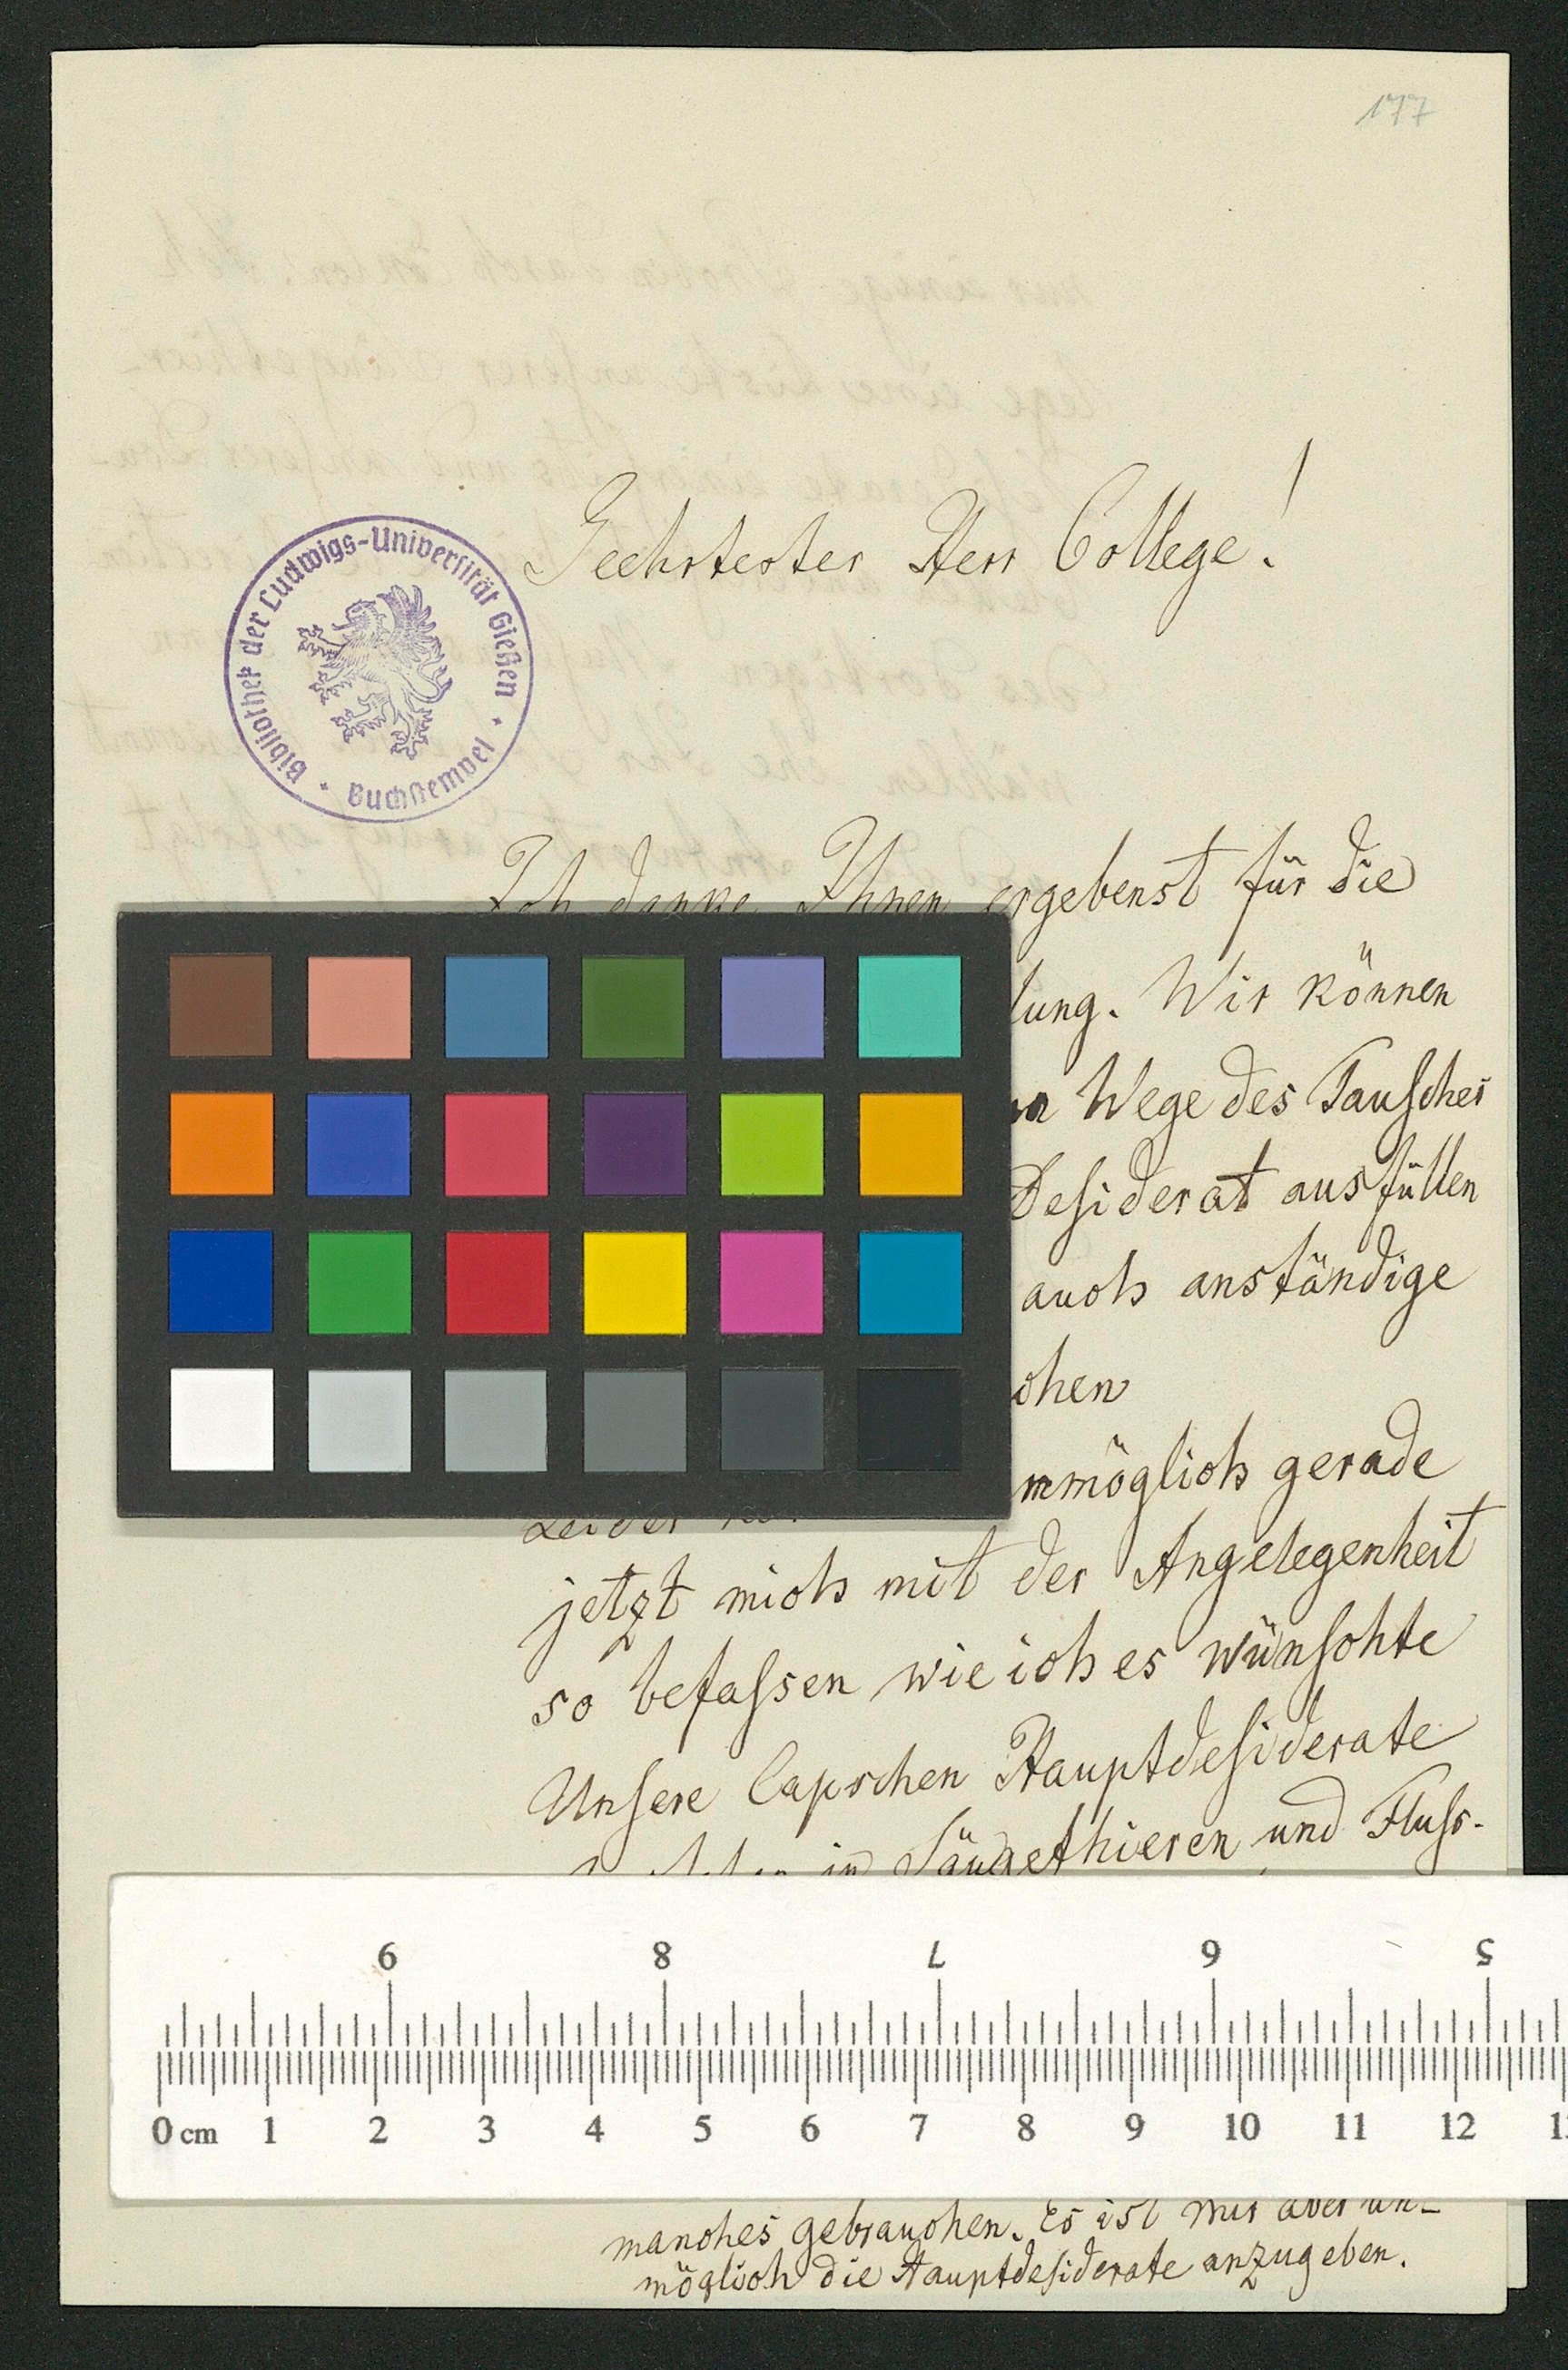 177
Geehrtester Herr College!
Bibliothek der Ludwigs-Universität Gießen
Buchstempel
Ich danke Ihnen ergebenst für die
lung. Wir können
Wege des Tausches
Desiderat ausfüllen
auch anständige
chen
unmöglich gerade
Leider
jetzt mich mit der Angelegenheit
so befassen wie ich es wünschte
Unsere Capschen Hauptdesiderate
in Säugethieren und Fluss-
9 8 7 6 5
0 cm 1 2 3 4 5 6 7 8 9 10 11 12
manches gebrauchen. Es ist mir aber un-
möglich die Hauptdesiderate anzugeben.